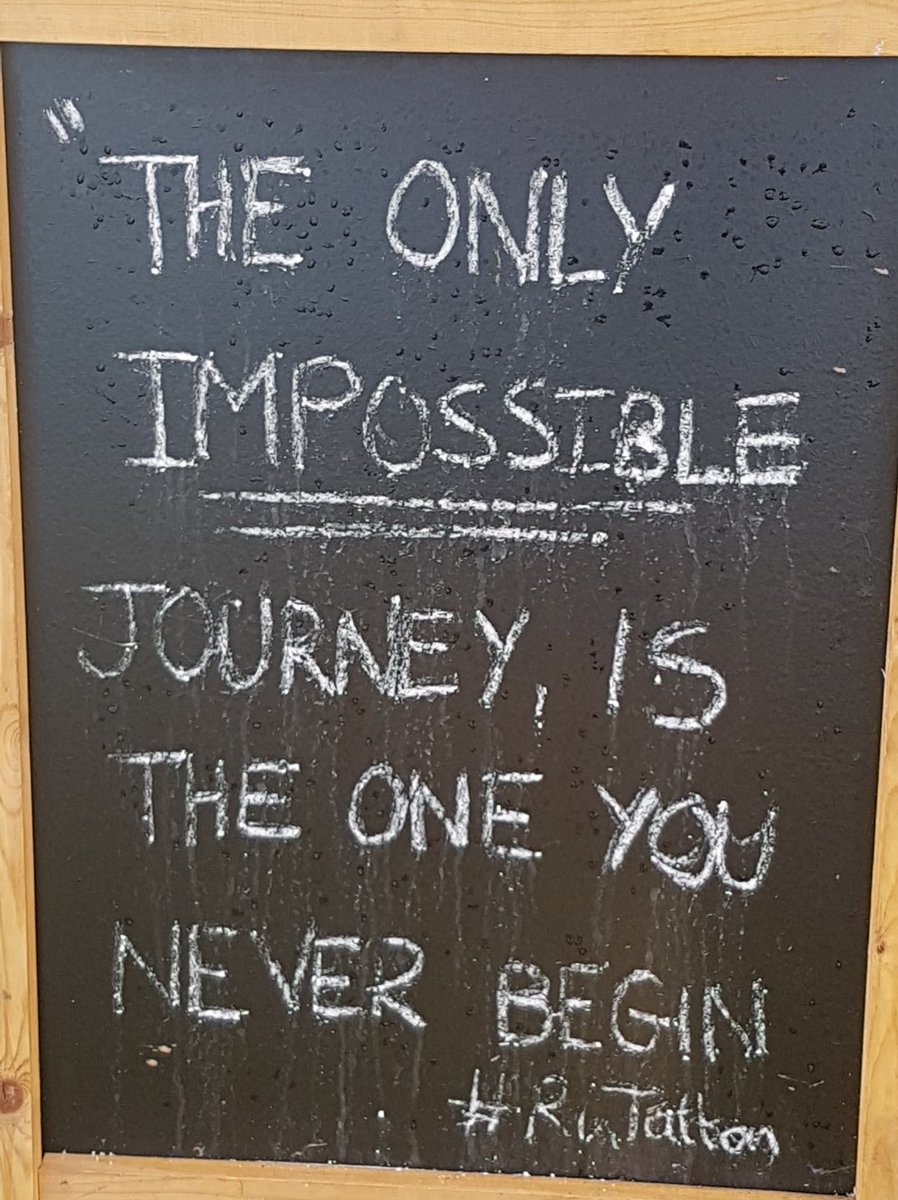 "THE ONLY
IMPOSSIBLE
JOURNEY, IS
THE ONE YOU
NEVER BEGIN